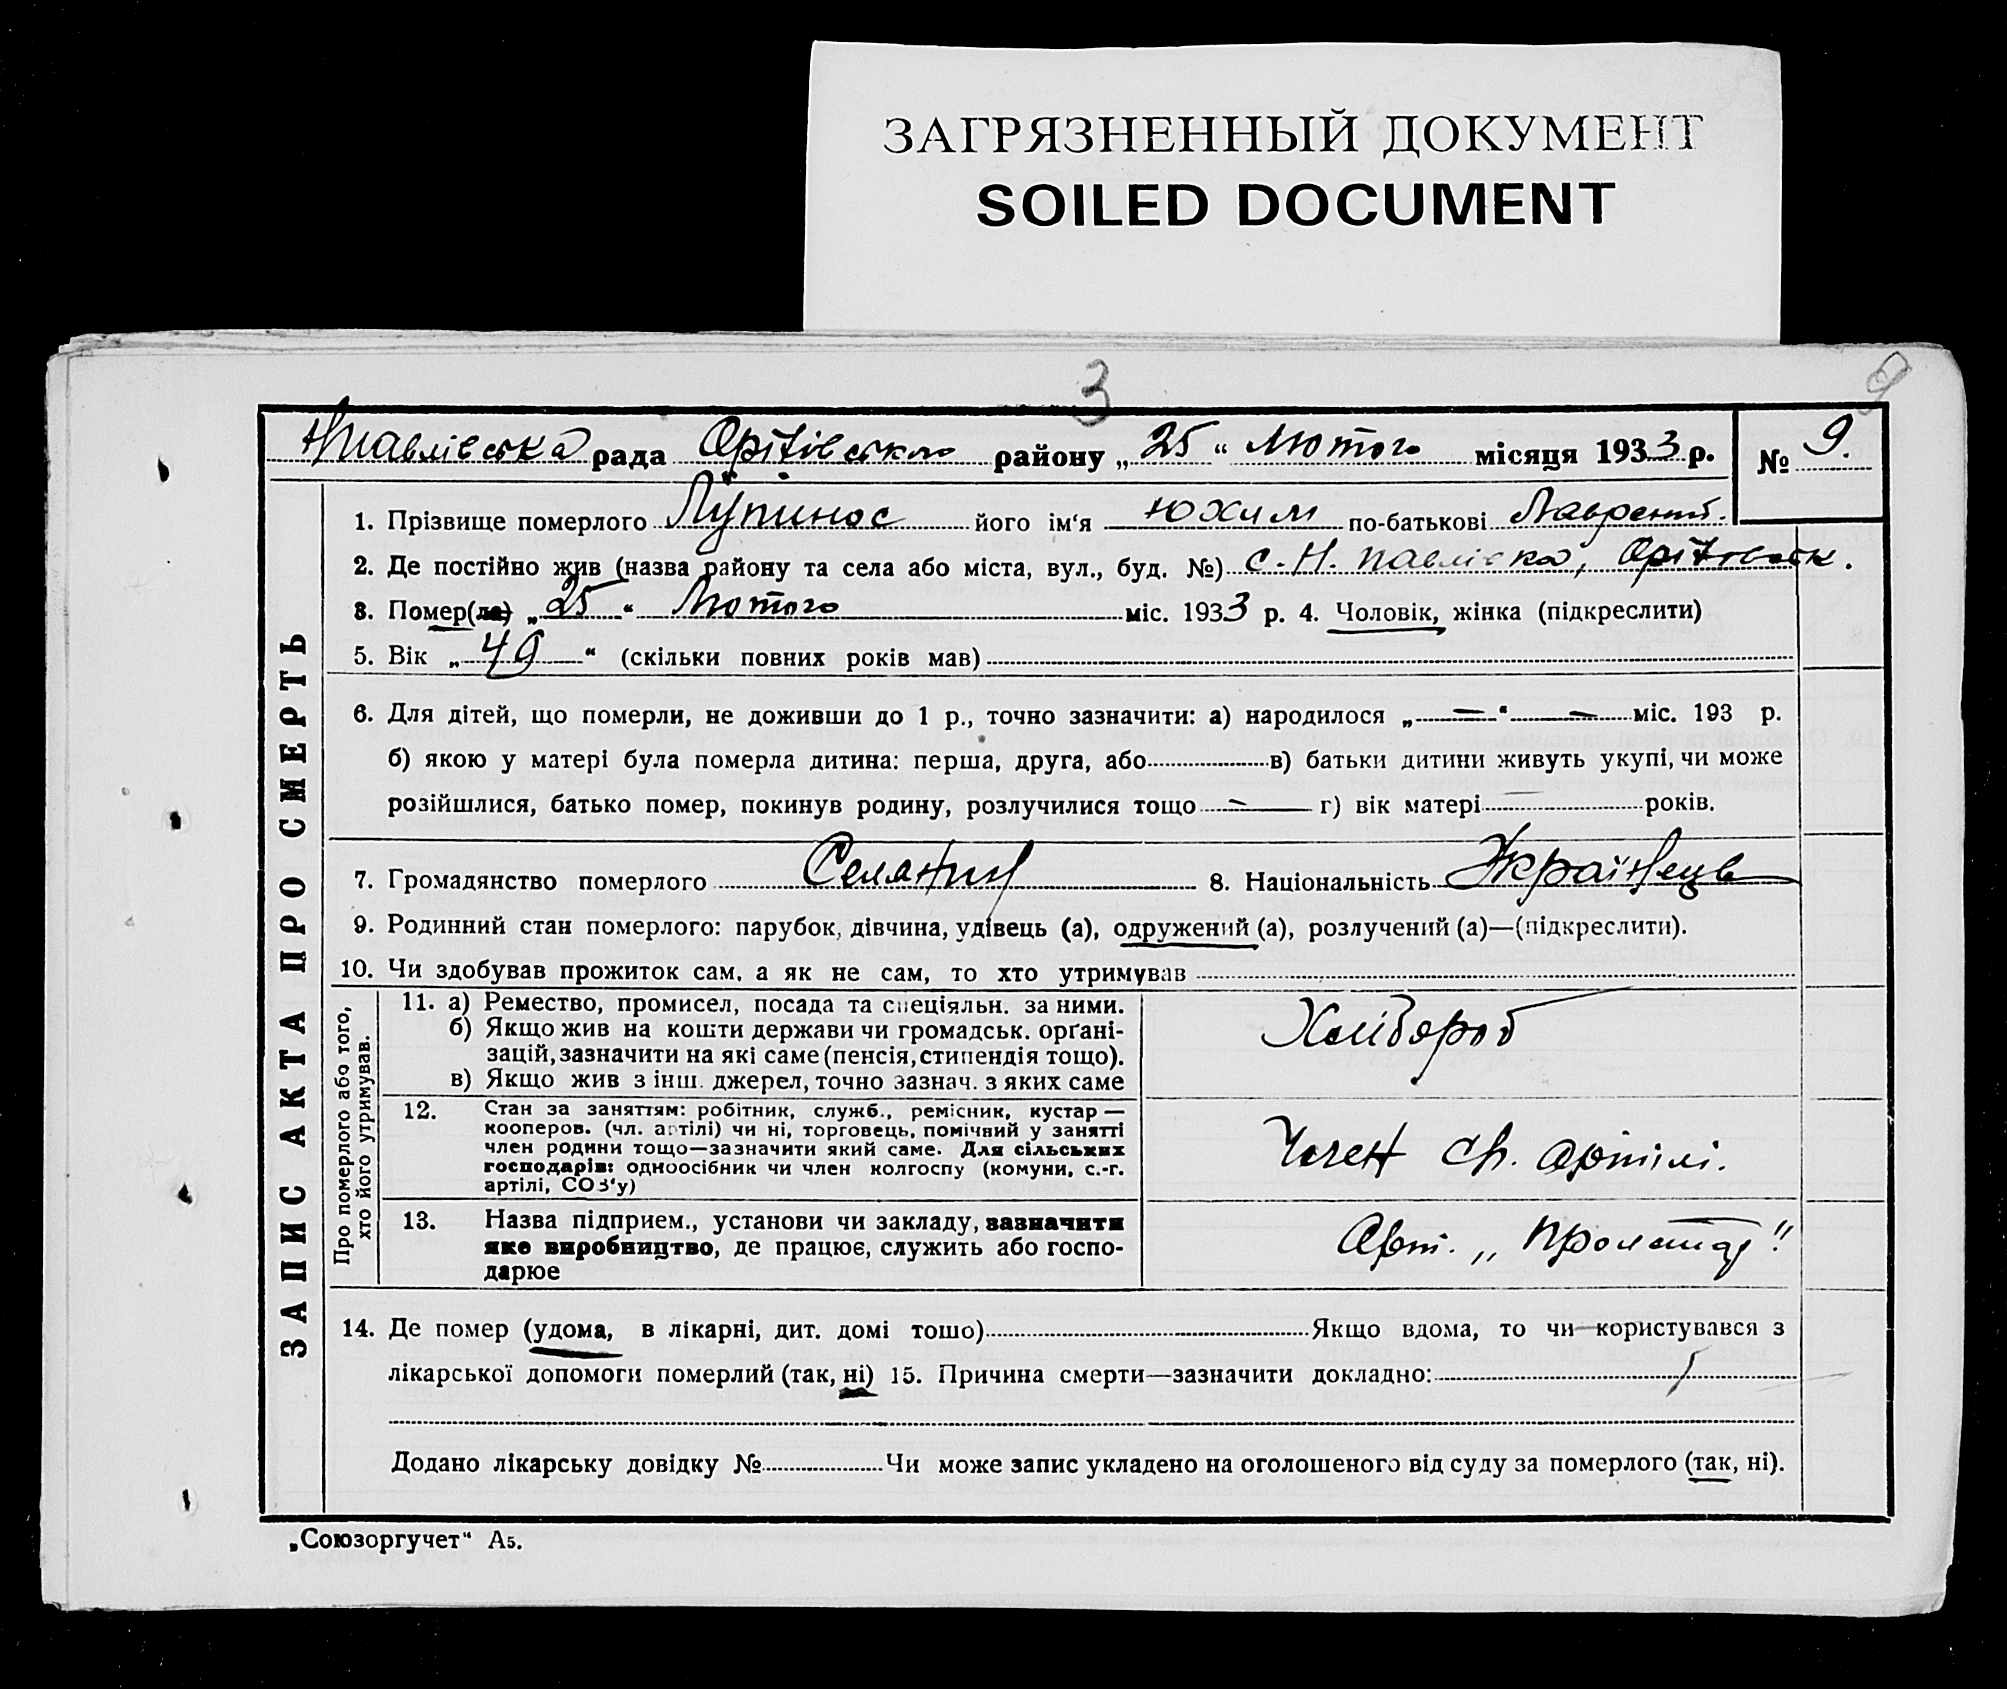 ЗАГРЯЗНЕННЫЙ ДОКУМЕНТ
SOILED DOCUMENT
3
9
Нпавлівська рада Оріхівського району „25“ Лютого місяця 1933 р. № 9.
ЗАПИС АКТА ПРО СМЕРТЬ
1. Прізвище померлого Лупинос його ім‘я Юхим по-батькові Лаврентій.
2. Де постійно жив (назва району та села або міста, вул., буд. №) с. Н. павлівка, Оріхівськ.
3. Помер(ла) „25“ Лютого міс. 1933 р. 4. Чоловік, жінка (підкреслити)
5. Вік „49“ (скільки повних років мав)
6. Для дітей, що померли, не доживши до 1 р., точно зазначити: а) народилося „—“ — міс. 193 р.
б) якою у матері була померла дитина: перша, друга, або в) батьки дитини живуть укупі, чи може
розійшлися, батько помер, покинув родину, розлучилися тощо — г) вік матері — років.
7. Громадянство померлого Селянин 8. Національність Українець
9. Родинний стан померлого: парубок, дівчина, удівець (а), одружений (а), розлучений (а)—(підкреслити).
10. Чи здобував прожиток сам, а як не сам, то хто утримував
Про померлого або того,
хто його утримував.
11. а) Ремество, промисел, посада та спеціяльн. за ними.
б) Якщо жив на кошти держави чи громадськ. орґані-
зацій, зазначити на які саме (пенсія, стипендія тощо).
в) Якщо жив з інш. джерел, точно зазнач. з яких саме
Хлібороб
12. Стан за заняттям: робітник, служб., ремісник, кустар —
кооперов. (чл. артілі) чи ні, торговець, помічний у занятті
член родини тощо—зазначити який саме. Для сільських
господарів: одноосібник чи член колгоспу (комуни, с.-г.
артілі, СОЗ‘у)
Член артілі.
13. Назва підприєм., установи чи закладу, зазначити
яке виробництво, де працює, служить або госпо-
дарює
Арт. „Пролетар“
14. Де помер (удома, в лікарні, дит. домі тощо) Якщо вдома, то чи користувався з
лікарської допомоги померлий (так, ні) 15. Причина смерти—зазначити докладно:
Додано лікарську довідку № Чи може запис укладено на оголошеного від суду за померлого (так, ні).
„Союзоргучет“ А5.